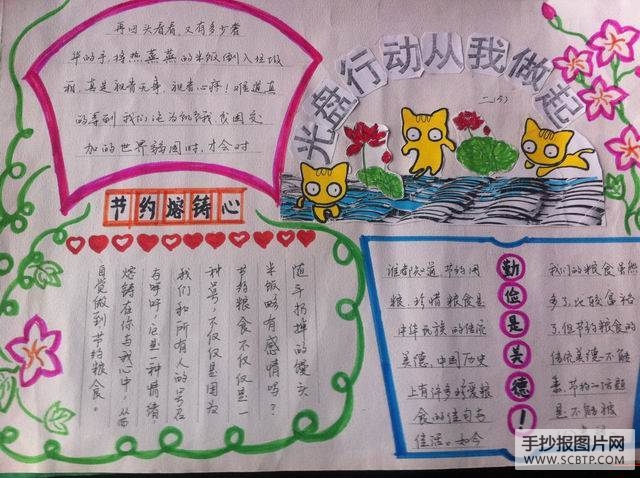 再回头看看,又有多少奢
华的手,将热蒸蒸的米饭倒入垃圾
箱,真是视者无事,视者心疼!难道真
的等到我们沦为饥饿我食国家
加的世界病困时,才会对
光盘行动从我做起
二(5)
节约熔铸心
随手扔掉的馒头
米饭哪有感情吗?
节约粮食不仅仅是一
种口号,不仅仅是国友
我们和所有人的口号名
有呼吁,它是一种情绪
熔铸在你与我心中,从而
自觉做到节约粮食。
谁都知道节约用
粮,珍惜粮食是
中华民族的传统
美德,中国历史
上有许多珍爱粮
食的佳句与
佳话。如今
勤俭是美德!
我们的粮食虽然
多了,比较拿拾
了,但节约粮食的
传统美德一不能
丢,节约一话题
是不能被
手抄报图片网
WWW.SCBTP.COM